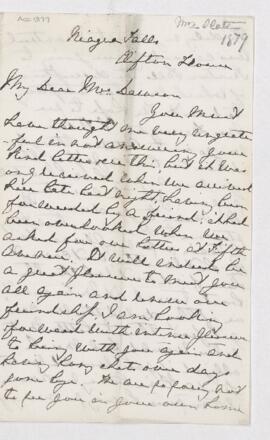 Acc 1877
Mrs
1879
Niagra Falls
Clifton House
My Dear Mrs Dawson
You must
have thought me very ungrate
-ful in not answering your
kind letter ere this, but it was
only received when we arrived
here late last night, having been
forwarded by a friend, it had
been overlooked when we
asked for our letters at Fifth
Avenue. It will indeed be
a great pleasure to meet you
all again and renew our
friendship. I am looking
forward with intense pleasure
to being with you again and
having long chats over days
gone bye. We are so sorry not
to see you in your own home